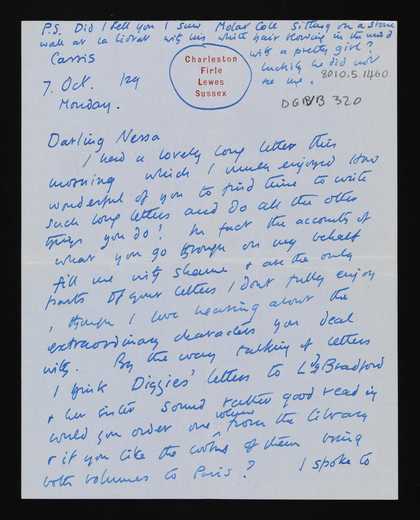 P.S. Did I tell you I saw Molar Cole sitting on a stone
wall at La Ciotat with his white hair blowing in the wind
with a pretty girl?
luckily he did not
see me.
8010.5.1460
Cassis
Charleston
Firle
Lewes
Sussex
7. Oct. '29
Monday.
DGB/B 320
Darling Nessa
I had a lovely long letter this
morning which I much enjoyed How
wonderful of you to find time to write
such long letters and do all the other
things you do! In fact the accounts of
what you go through on my behalf
fill me with shame & are the only
parts of your letters I dont fully enjoy
, though I love hearing about the
extraordinary characters you deal
with. By the way talking of letters
I think Diggies' letters to Ldy Bradford
& her sister sound rather good reading
would you order one volume from the Library
& if you like the of them bring
both volumes to Paris? I spoke to